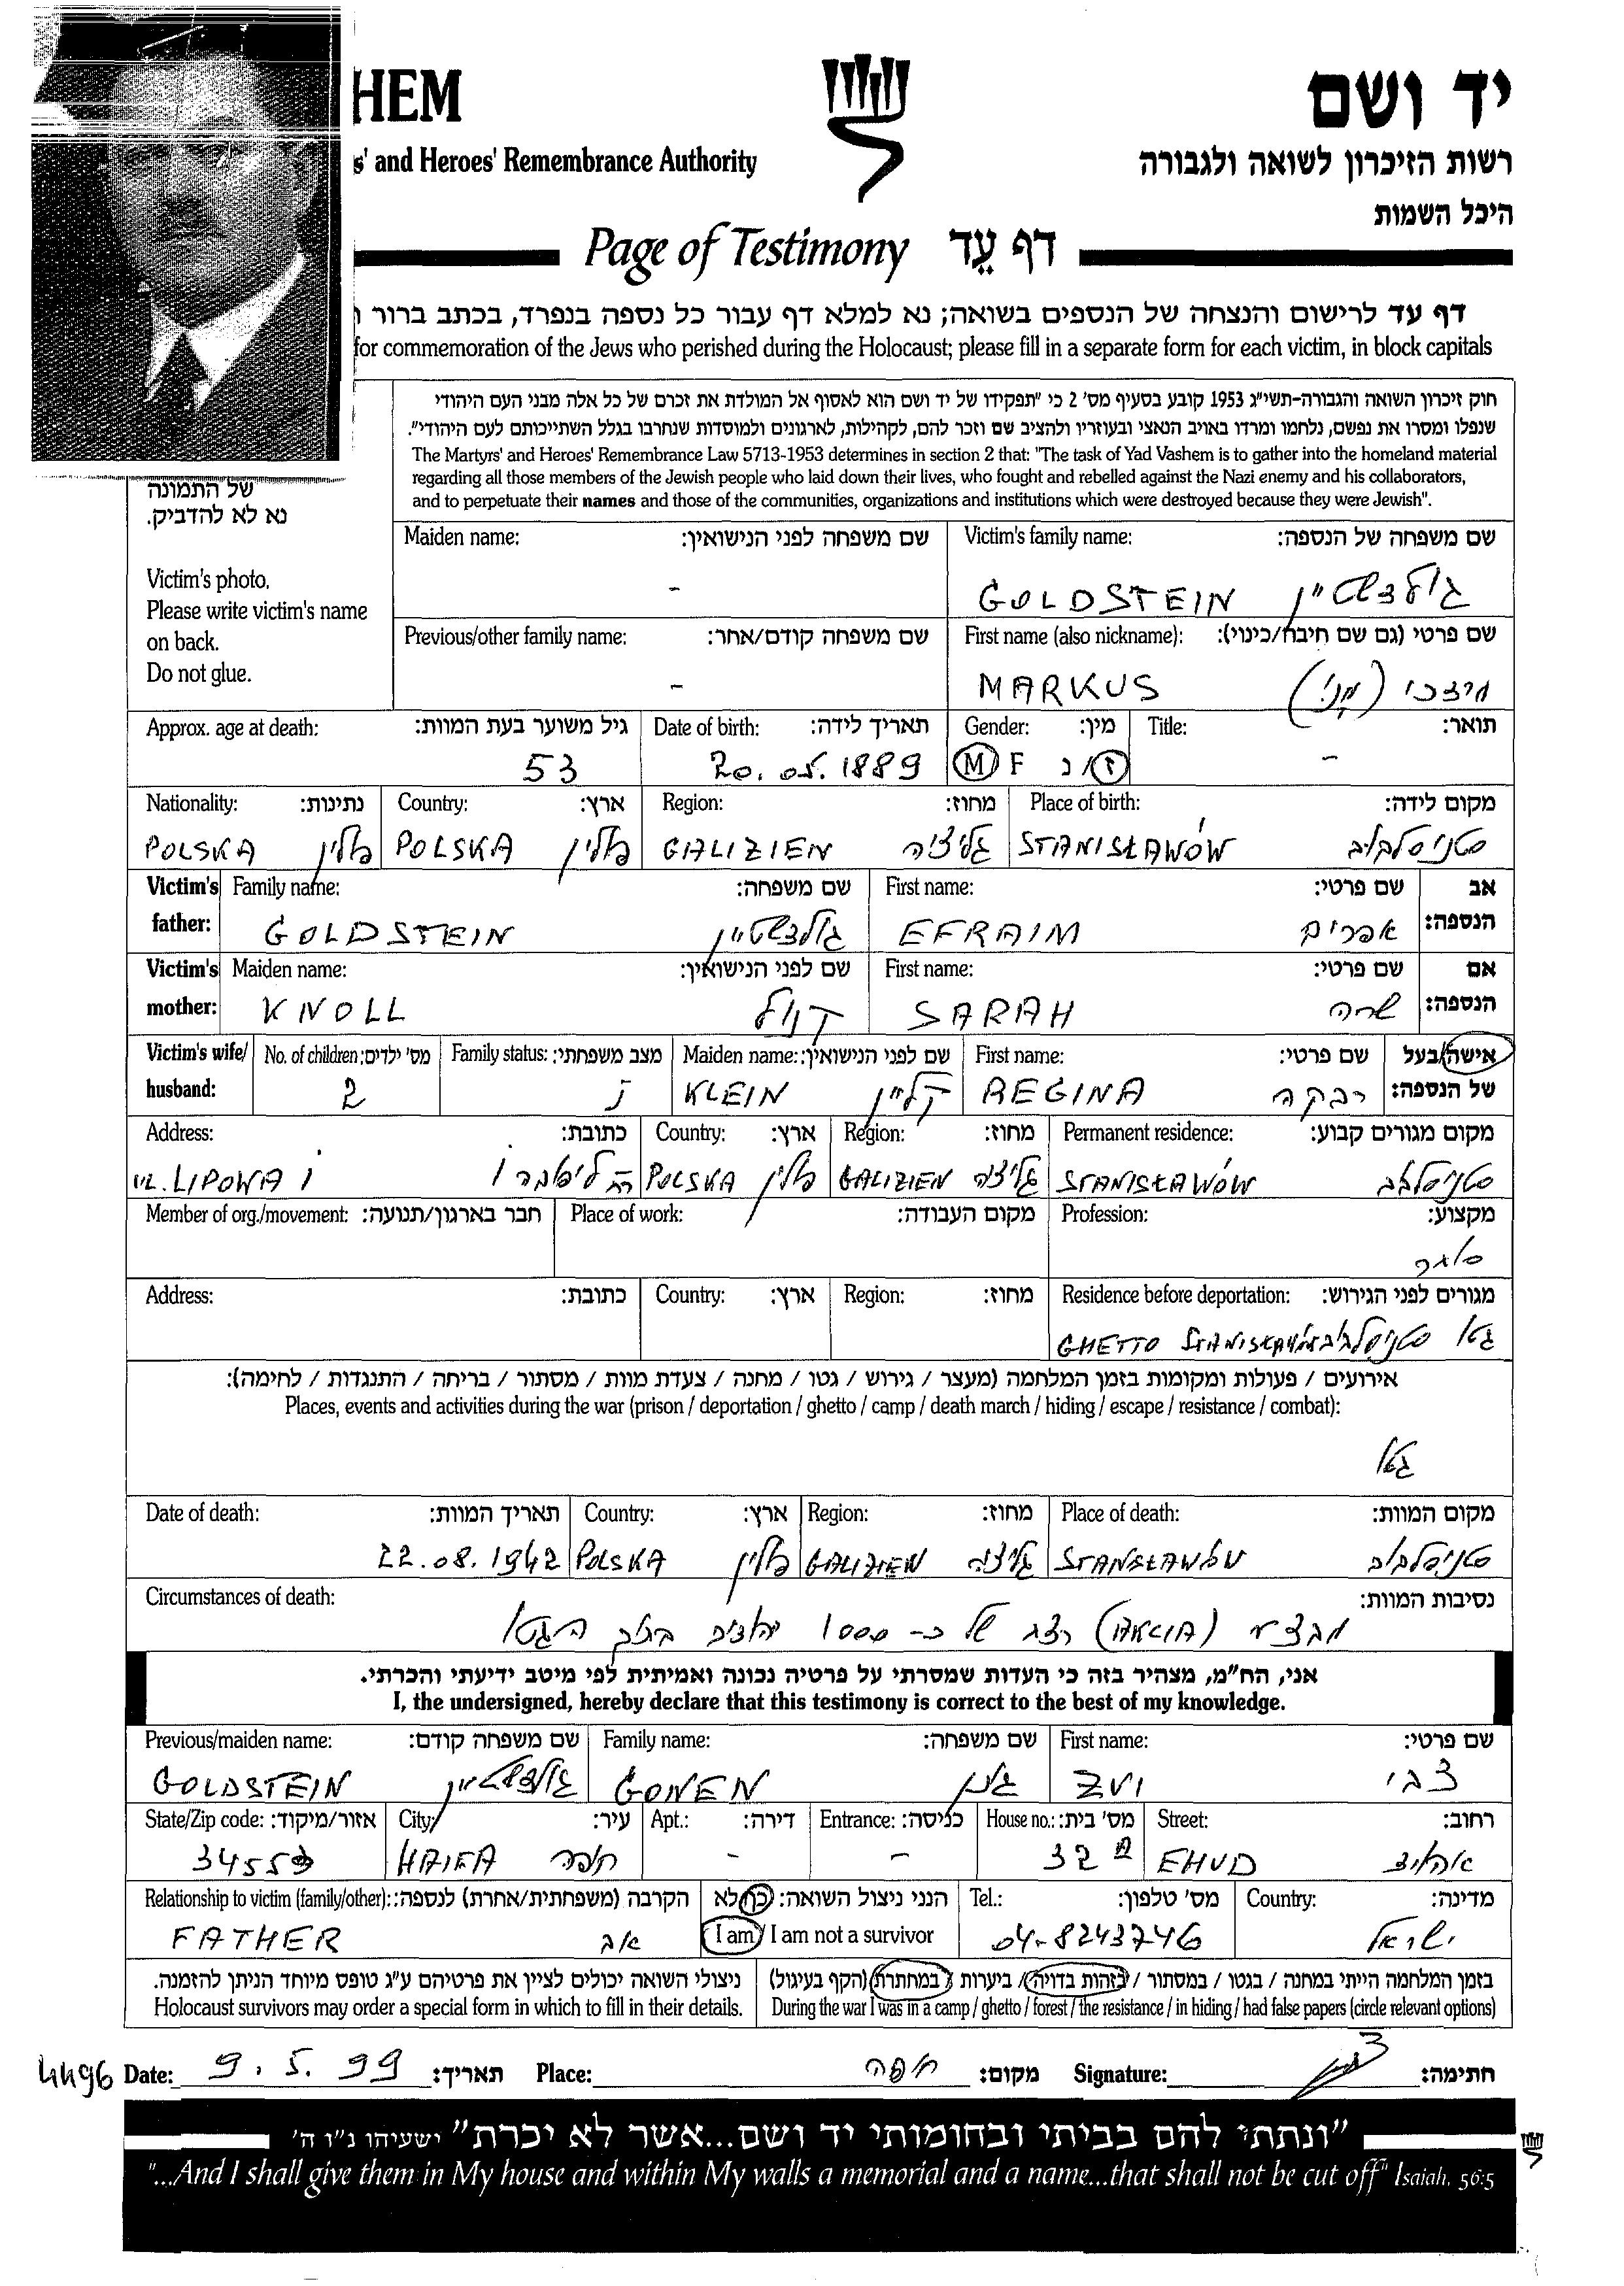 HEM
יד ושם
s' and Heroes' Remembrance Authority
רשות הזיכרון לשואה ולגבורה
היכל השמות
Page of Testimony דף עֵד
דף עד לרישום והנצחה של הנספים בשואה; נא למלא דף עבור כל נספה בנפרד, בכתב ברור ו
for commemoration of the Jews who perished during the Holocaust; please fill in a separate form for each victim, in block capitals
חוק זיכרון השואה והגבורה-תשי"ג 1953 קובע בסעיף מס' 2 כי "תפקידו של יד ושם הוא לאסוף אל המולדת את זכרם של כל אלה מבני העם היהודי
שנפלו ומסרו את נפשם, נלחמו ומרדו באויב הנאצי ובעוזריו ולהציב שם וזכר להם, לקהילות, לארגונים ולמוסדות שנחרבו בגלל השתייכותם לעם היהודי".
The Martyrs' and Heroes' Remembrance Law 5713-1953 determines in section 2 that: "The task of Yad Vashem is to gather into the homeland material
regarding all those members of the Jewish people who laid down their lives, who fought and rebelled against the Nazi enemy and his collaborators,
and to perpetuate their names and those of the communities, organizations and institutions which were destroyed because they were Jewish".
של התמונה
נא לא להדביק.
Victim's photo.
Please write victim's name
on back.
Do not glue.
Maiden name: שם משפחה לפני הנישואין: Victim's family name: שם משפחה של הנספה:
- GOLDSTEIN גולדשטיין
Previous/other family name: שם משפחה קודם/אחר: First name (also nickname): שם פרטי (גם שם חיבה/כינוי):
- MARKUS מרדכי
Approx. age at death: גיל משוער בעת המוות: Date of birth: תאריך לידה: Gender: מין: Title: תואר:
53 20.05.1889 M F ז/נ -
Nationality: נתינות: Country: ארץ: Region: מחוז: Place of birth: מקום לידה:
POLSKA פולין POLSKA פולין GALIZIEN גליציה STANISŁAWÓW סטניסלבוב
Victim's father: Family name: שם משפחה: First name: שם פרטי: אב הנספה:
GOLDSTEIN גולדשטיין EFRAIM אפרים
Victim's mother: Maiden name: שם לפני הנישואין: First name: שם פרטי: אם הנספה:
KNOLL קנול SARAH שרה
Victim's wife/ husband: No. of children: מס' ילדים: Family status: מצב משפחתי: Maiden name: שם לפני הנישואין: First name: שם פרטי: אישה/בעל של הנספה:
2 נ KLEIN קליין REGINA רבקה
Address: כתובת: Country: ארץ: Region: מחוז: Permanent residence: מקום מגורים קבוע:
ul. LIPOWA 1 רח ליפובה 1 POLSKA פולין GALIZIEN גליציה STANISŁAWÓW סטניסלבוב
Member of org./movement: חבר בארגון/תנועה: Place of work: מקום העבודה: Profession: מקצוע:
סוחר
Address: כתובת: Country: ארץ: Region: מחוז: Residence before deportation: מגורים לפני הגירוש:
GHETTO STANISŁAWÓW סטניסלבוב גטו
אירועים / פעולות ומקומות בזמן המלחמה (מעצר / גירוש / גטו / מחנה / צעדת מוות / מסתור / בריחה / התנגדות / לחימה):
Places, events and activities during the war (prison / deportation / ghetto / camp / death march / hiding / escape / resistance / combat):
גטו
Date of death: תאריך המוות: Country: ארץ: Region: מחוז: Place of death: מקום המוות:
22.08.1942 POLSKA פולין GALIZIEN גליציה STANISŁAWÓW סטניסלבוב
Circumstances of death: נסיבות המוות:
מבצע (AKCIA) רצח של כ- 1000 יהודים בתוך הגטו
אני, הח"מ, מצהיר בזה כי העדות שמסרתי על פרטיה נכונה ואמיתית לפי מיטב ידיעתי והכרתי.
I, the undersigned, hereby declare that this testimony is correct to the best of my knowledge.
Previous/maiden name: שם משפחה קודם: Family name: שם משפחה: First name: שם פרטי:
GOLDSTEIN גולדשטיין GONEN גונן ZVI צבי
State/Zip code: אזור/מיקוד: City: עיר: Apt.: דירה: Entrance: כניסה: House no.: מס' בית: Street: רחוב:
34553 HAIFA חיפה - - 32 A EHUD אהוד
Relationship to victim (family/other): הקרבה (משפחתית/אחרת) לנספה: הנני ניצול השואה: כן/לא Tel.: מס' טלפון: Country: מדינה:
FATHER אב I am / I am not a survivor 04-8243746 ישראל
ניצולי השואה יכולים לציין את פרטיהם ע"ג טופס מיוחד הניתן להזמנה. בזמן המלחמה הייתי במחנה / בגטו / במסתור / בזהות בדויה / ביערות / במחתרת (הקף בעיגול)
Holocaust survivors may order a special form in which to fill in their details. During the war I was in a camp / ghetto / forest / the resistance / in hiding / had false papers (circle relevant options)
4496 Date: 9.5.99 תאריך: Place: חיפה מקום: Signature: חתימה:
"ונתתי להם בביתי ובחומותי יד ושם...אשר לא יכרת" ישעיהו נ"ו ה'
"...And I shall give them in My house and within My walls a memorial and a name...that shall not be cut off" Isaiah, 56:5